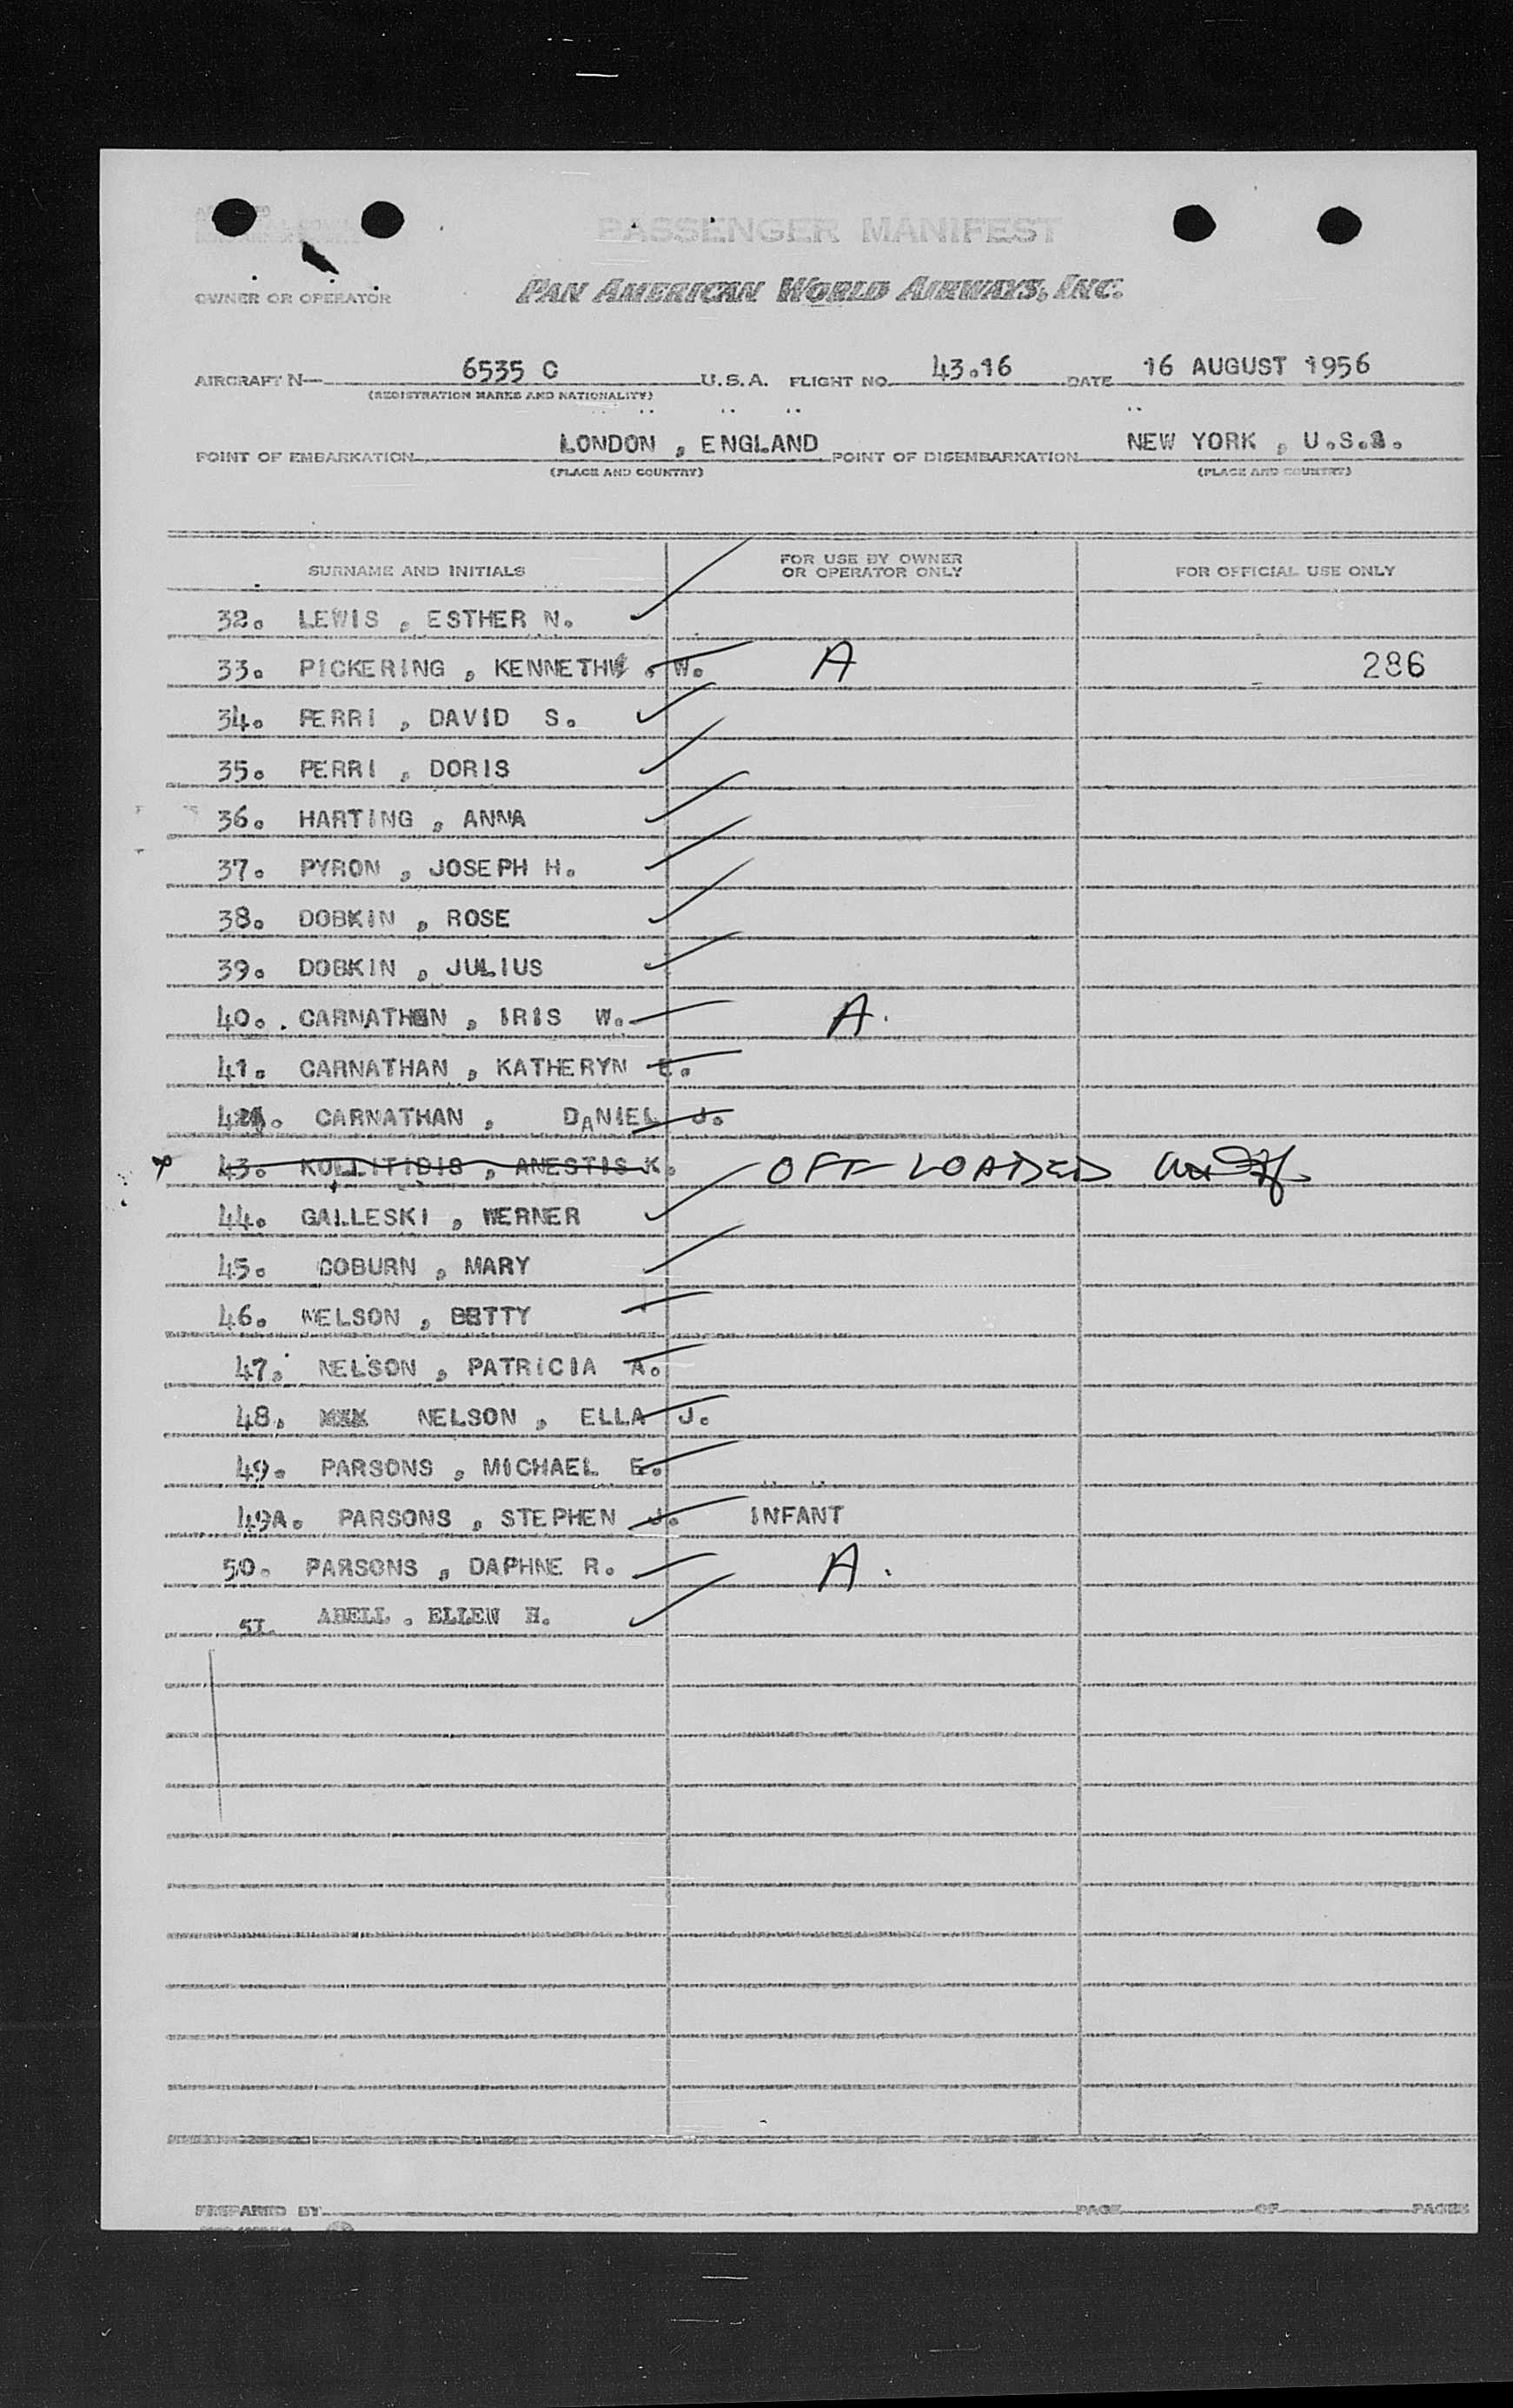 PASSENGER MANIFEST
OWNER OR OPERATOR PAN AMERICAN WORLD AIRWAYS, INC.
AIRCRAFT N— 6535 C U.S.A. FLIGHT NO. 43.16 DATE 16 AUGUST 1956
(REGISTRATION MARKS AND NATIONALITY)
POINT OF EMBARKATION LONDON , ENGLAND POINT OF DISEMBARKATION NEW YORK , U.S.A.
(PLACE AND COUNTRY) (PLACE AND COUNTRY)
SURNAME AND INITIALS FOR USE BY OWNER OR OPERATOR ONLY FOR OFFICIAL USE ONLY
32. LEWIS , ESTHER N.
33. PICKERING , KENNETH . W. A 286
34. PERRI , DAVID S.
35. PERRI , DORIS
36. HARTING , ANNA
37. PYRON , JOSEPH H.
38. DOBKIN , ROSE
39. DOBKIN , JULIUS
40. . CARNATHAN , IRIS W. A.
41. CARNATHAN , KATHERYN E.
42. CARNATHAN , DANIEL J.
43. KOLLITIDIS , ANESTIS K. OFF LOADED
44. GALLESKI , WERNER
45. COBURN , MARY
46. NELSON , BETTY
47. NELSON , PATRICIA A.
48. NELSON , ELLA J.
49. PARSONS , MICHAEL E.
49A. PARSONS , STEPHEN J. INFANT
50. PARSONS , DAPHNE R. A.
51. ABELL . ELLEN H.
PREPARED BY PAGE OF PAGES